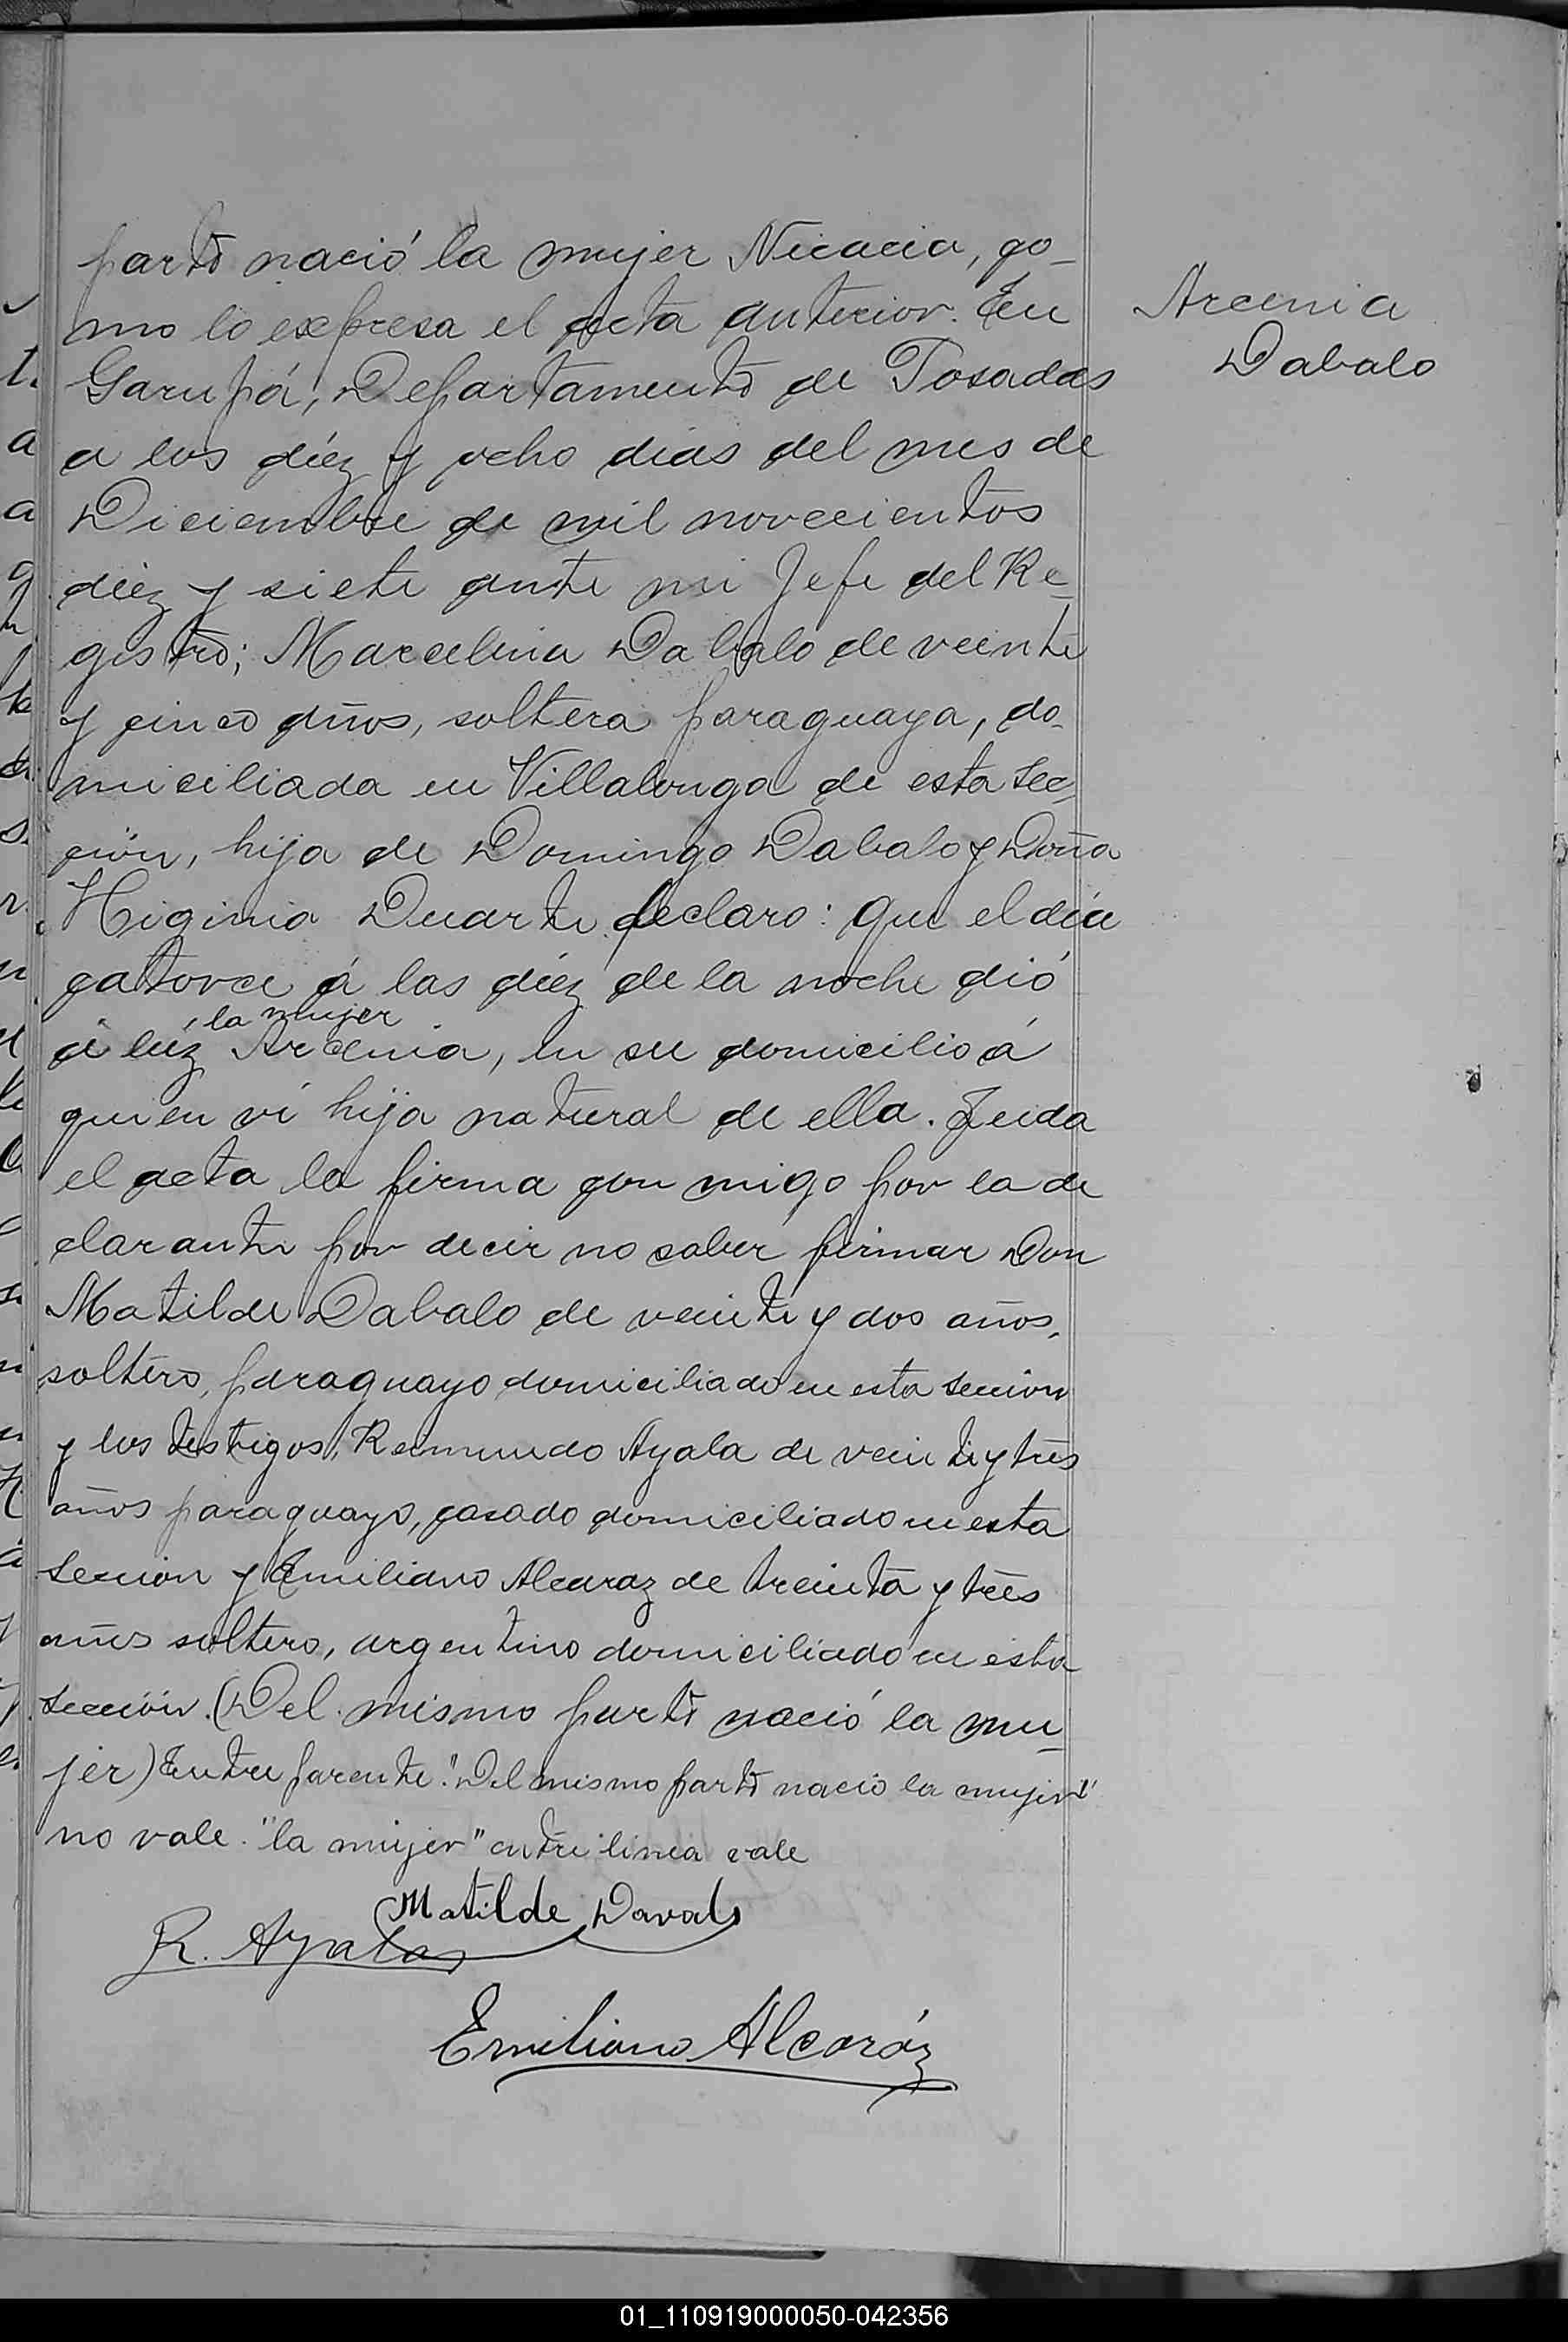 parto nació la mujer Nicacia, co-
mo lo expresa el acta anterior. En
Garupá, Departamento de Posadas
a los diéz y ocho dias del mes de
Diciembre de mil novecientos
diéz y siete ante mi Jefe del Re-
gistro; Marcelina Dabalo de veinte
y cinco años, soltera paraguaya, do-
miciliada en Villalonga de esta Sec-
ción, hija de Domingo Dabalo y Doña
Higinia Duarte declaro: que el día
catorce á las diéz de la noche dió
la mujer
á lúz Arcenia, en su domicilio á
quien ví hija natural de ella. Leida
el acta la firma con migo por la de
clarante por decir no saber firmar Don
Matilde Dabalo de veinte y dos años,
soltero, paraguayo domiciliado en esta Seccion
y los testigos, Reimundo Ayala de veinte y tres
años paraguayo, casado domiciliado en esta
Seccion y Emiliano Alcaraz de treinta y tres
años soltero, argentino domiciliado en esta
Sección. (Del mismo parto nació la mu-
jer) Entre parente. "Del mismo parto nacio la mujer"
no vale. "la mujer" entre linea vale
Matilde Davalo
R. Ayala
Emiliano Alcaráz
Arcenia
Dabalo
01_110919000050-042356